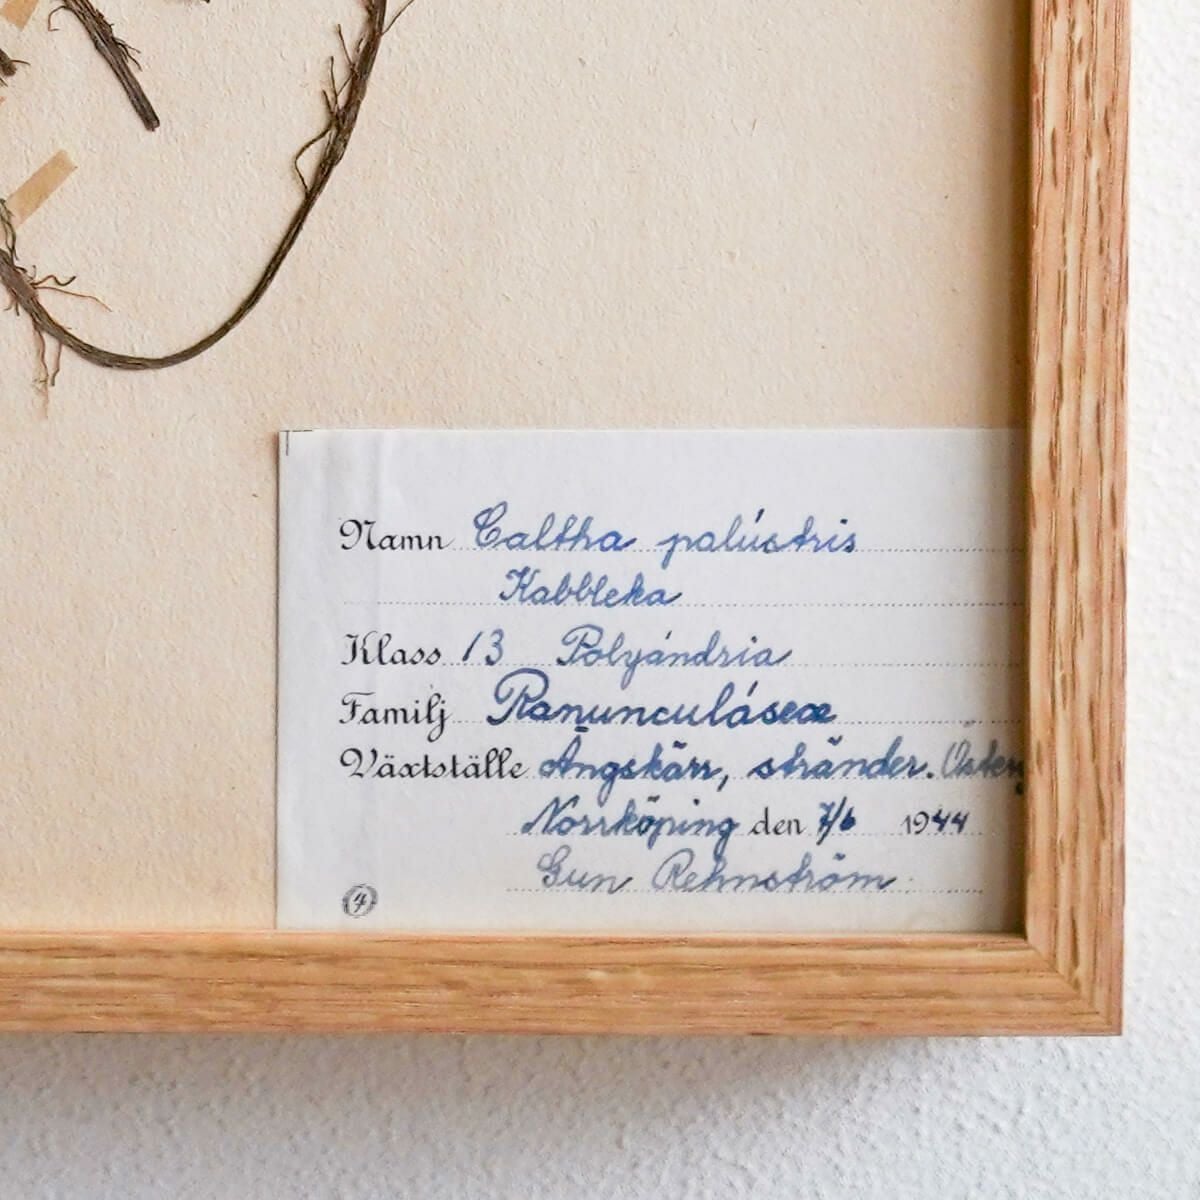 Namn Caltha palústris
Kabbleka
Klass 13 Polyándria
Familj Ranunculáseæ
Växtställe Ängskärr, stränder. Österg
Norrköping den 7/6 1944
Gun Rehnström
4